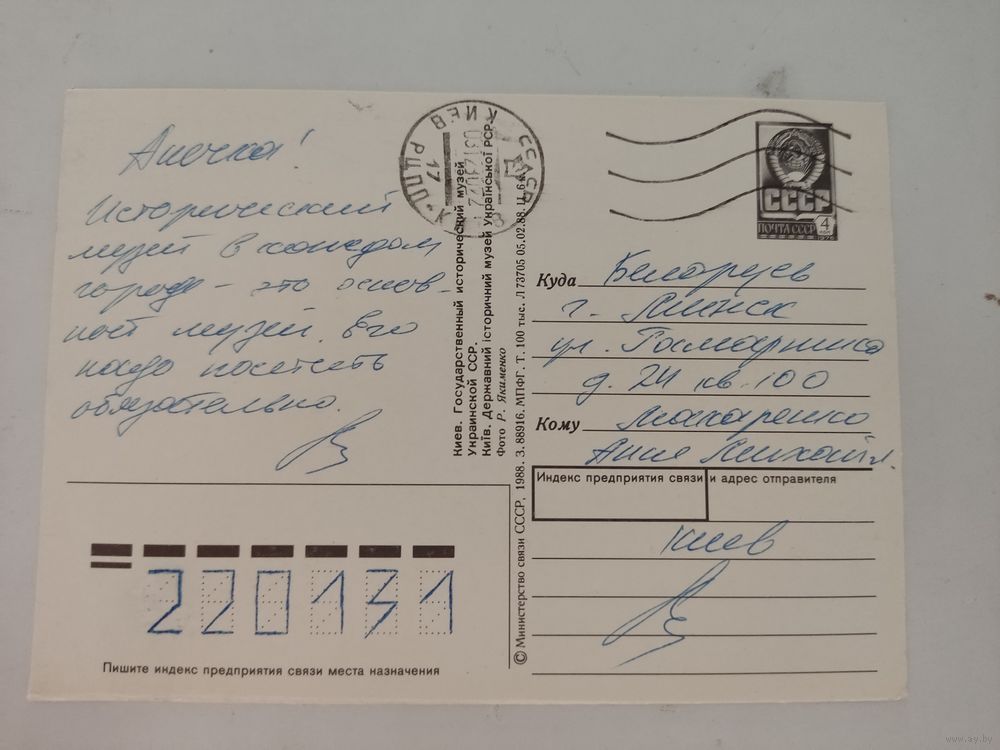 Анечка!
Исторический
музей в каждом
городе - это основ-
ной музей. Его
надо посетить
обязательно.
КИЕВ РЦПП
17
СССР
Киев. Государственный исторический музей
Украинской ССР.
Київ. Державний історичний музей Української РСР.
Фото Р. Якименко
© Министерство связи СССР, 1988. З. 88916. МПФГ. Т. 100 тыс. Л 73705 05.02.88. Ц. 6 к.
СССР
ПОЧТА СССР 4
1976
Куда Беларусь
г. Минск
ул.
д. 24 кв. 100
Кому Макаренко
Анне Михайл.
Индекс предприятия связи и адрес отправителя
Киев
220131
Пишите индекс предприятия связи места назначения
www.ay.by